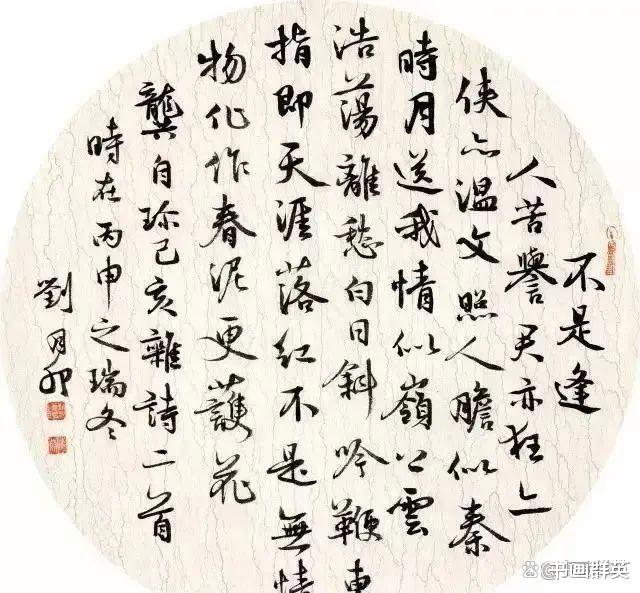 不是逢
人苦譽君亦狂亦
侠亦溫文照人膽似秦
時月送我情似嶺上雲
浩蕩離愁白日斜吟鞭東
指即天涯落紅不是無情
物化作春泥更護花
龔自珍己亥雜詩二首
時在丙申之瑞冬
劉月卯
书画群英